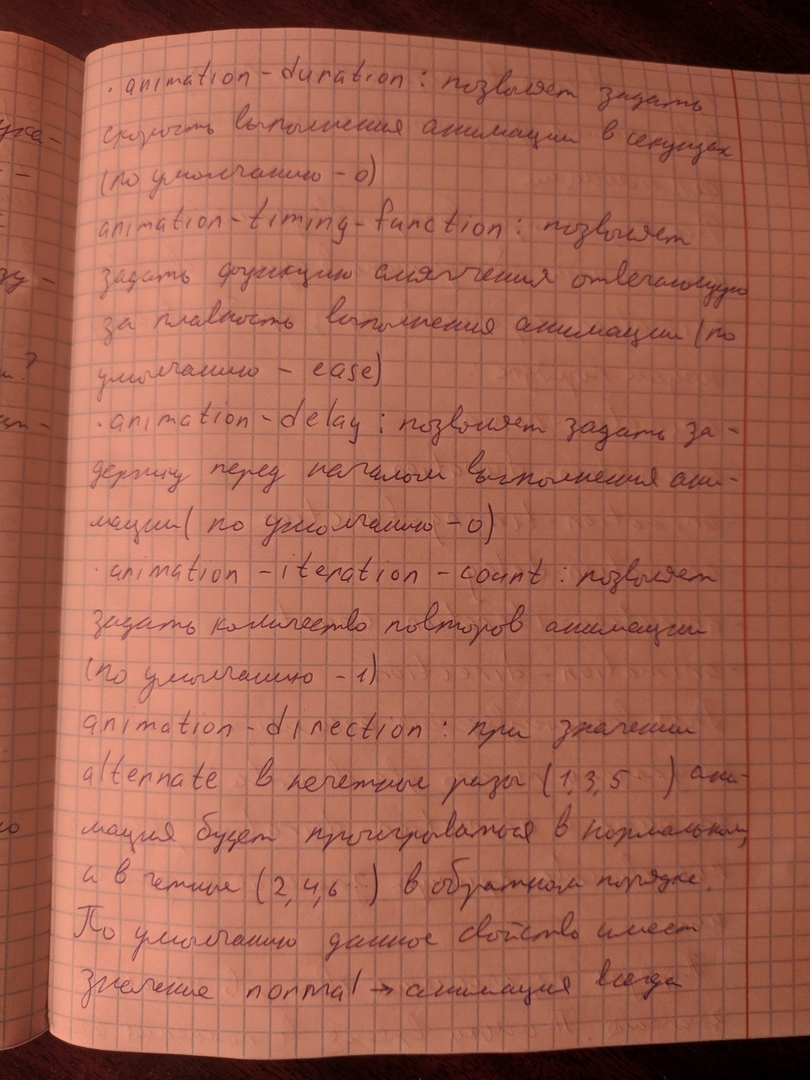 · animation-duration: позволяет задать
скорость выполнения анимации в секундах
(по умолчанию - 0)
animation-timing-function: позволяет
задать функцию смягчения отвечающую
за плавность выполнения анимации (по
умолчанию - ease)
· animation-delay: позволяет задать за-
держку перед началом выполнения ани-
мации (по умолчанию - 0)
· animation-iteration-count: позволяет
задать количество повторов анимации
(по умолчанию - 1)
animation-direction: при значении
alternate в нечетные разы (1,3,5...) ани-
мация будет проигрываться в нормальном,
а в четные (2,4,6...) в обратном порядке.
По умолчанию данное свойство имеет
значение normal → анимация всегда